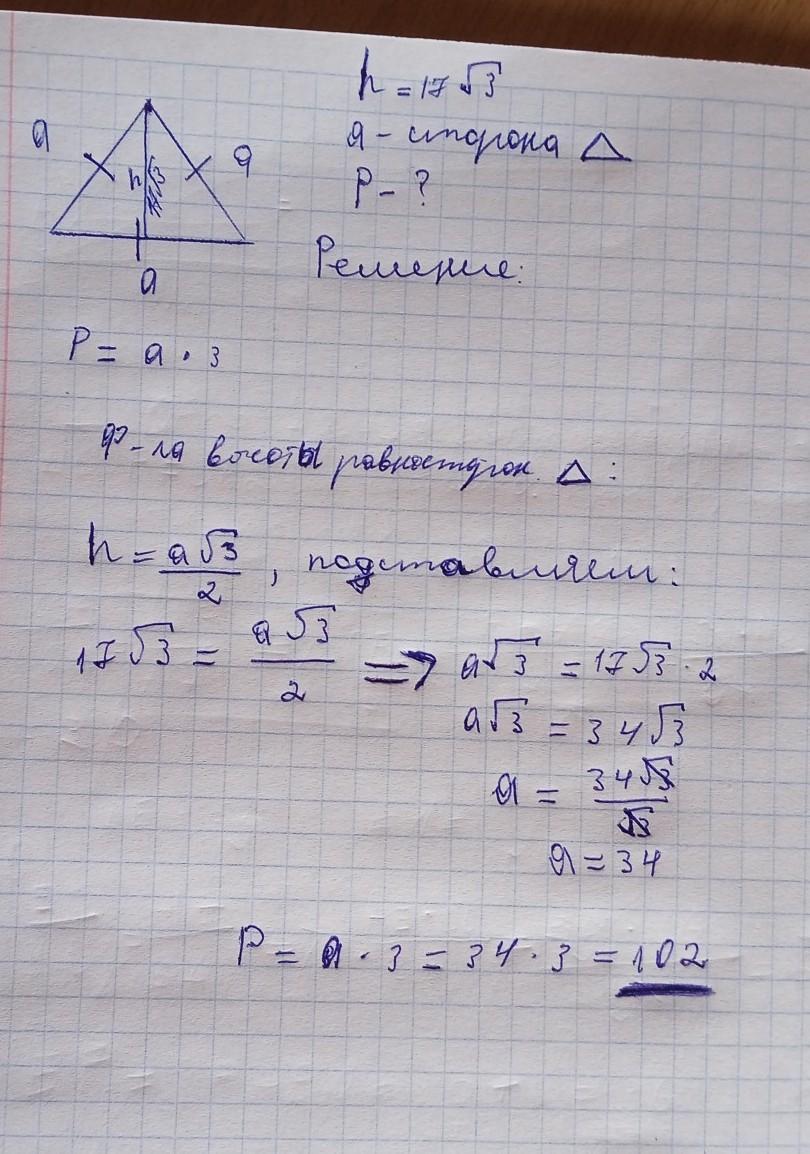 h = 17√3
a - сторона △
P - ?
a
a
h
a
Решение:
P = a · 3
Ф-ла высоты равносторон. △:
h = a√3/2, подставляем:
17√3 = a√3/2 => a√3 = 17√3 · 2
a√3 = 34√3
a = 34√3/√3
a = 34
P = a · 3 = 34 · 3 = 102